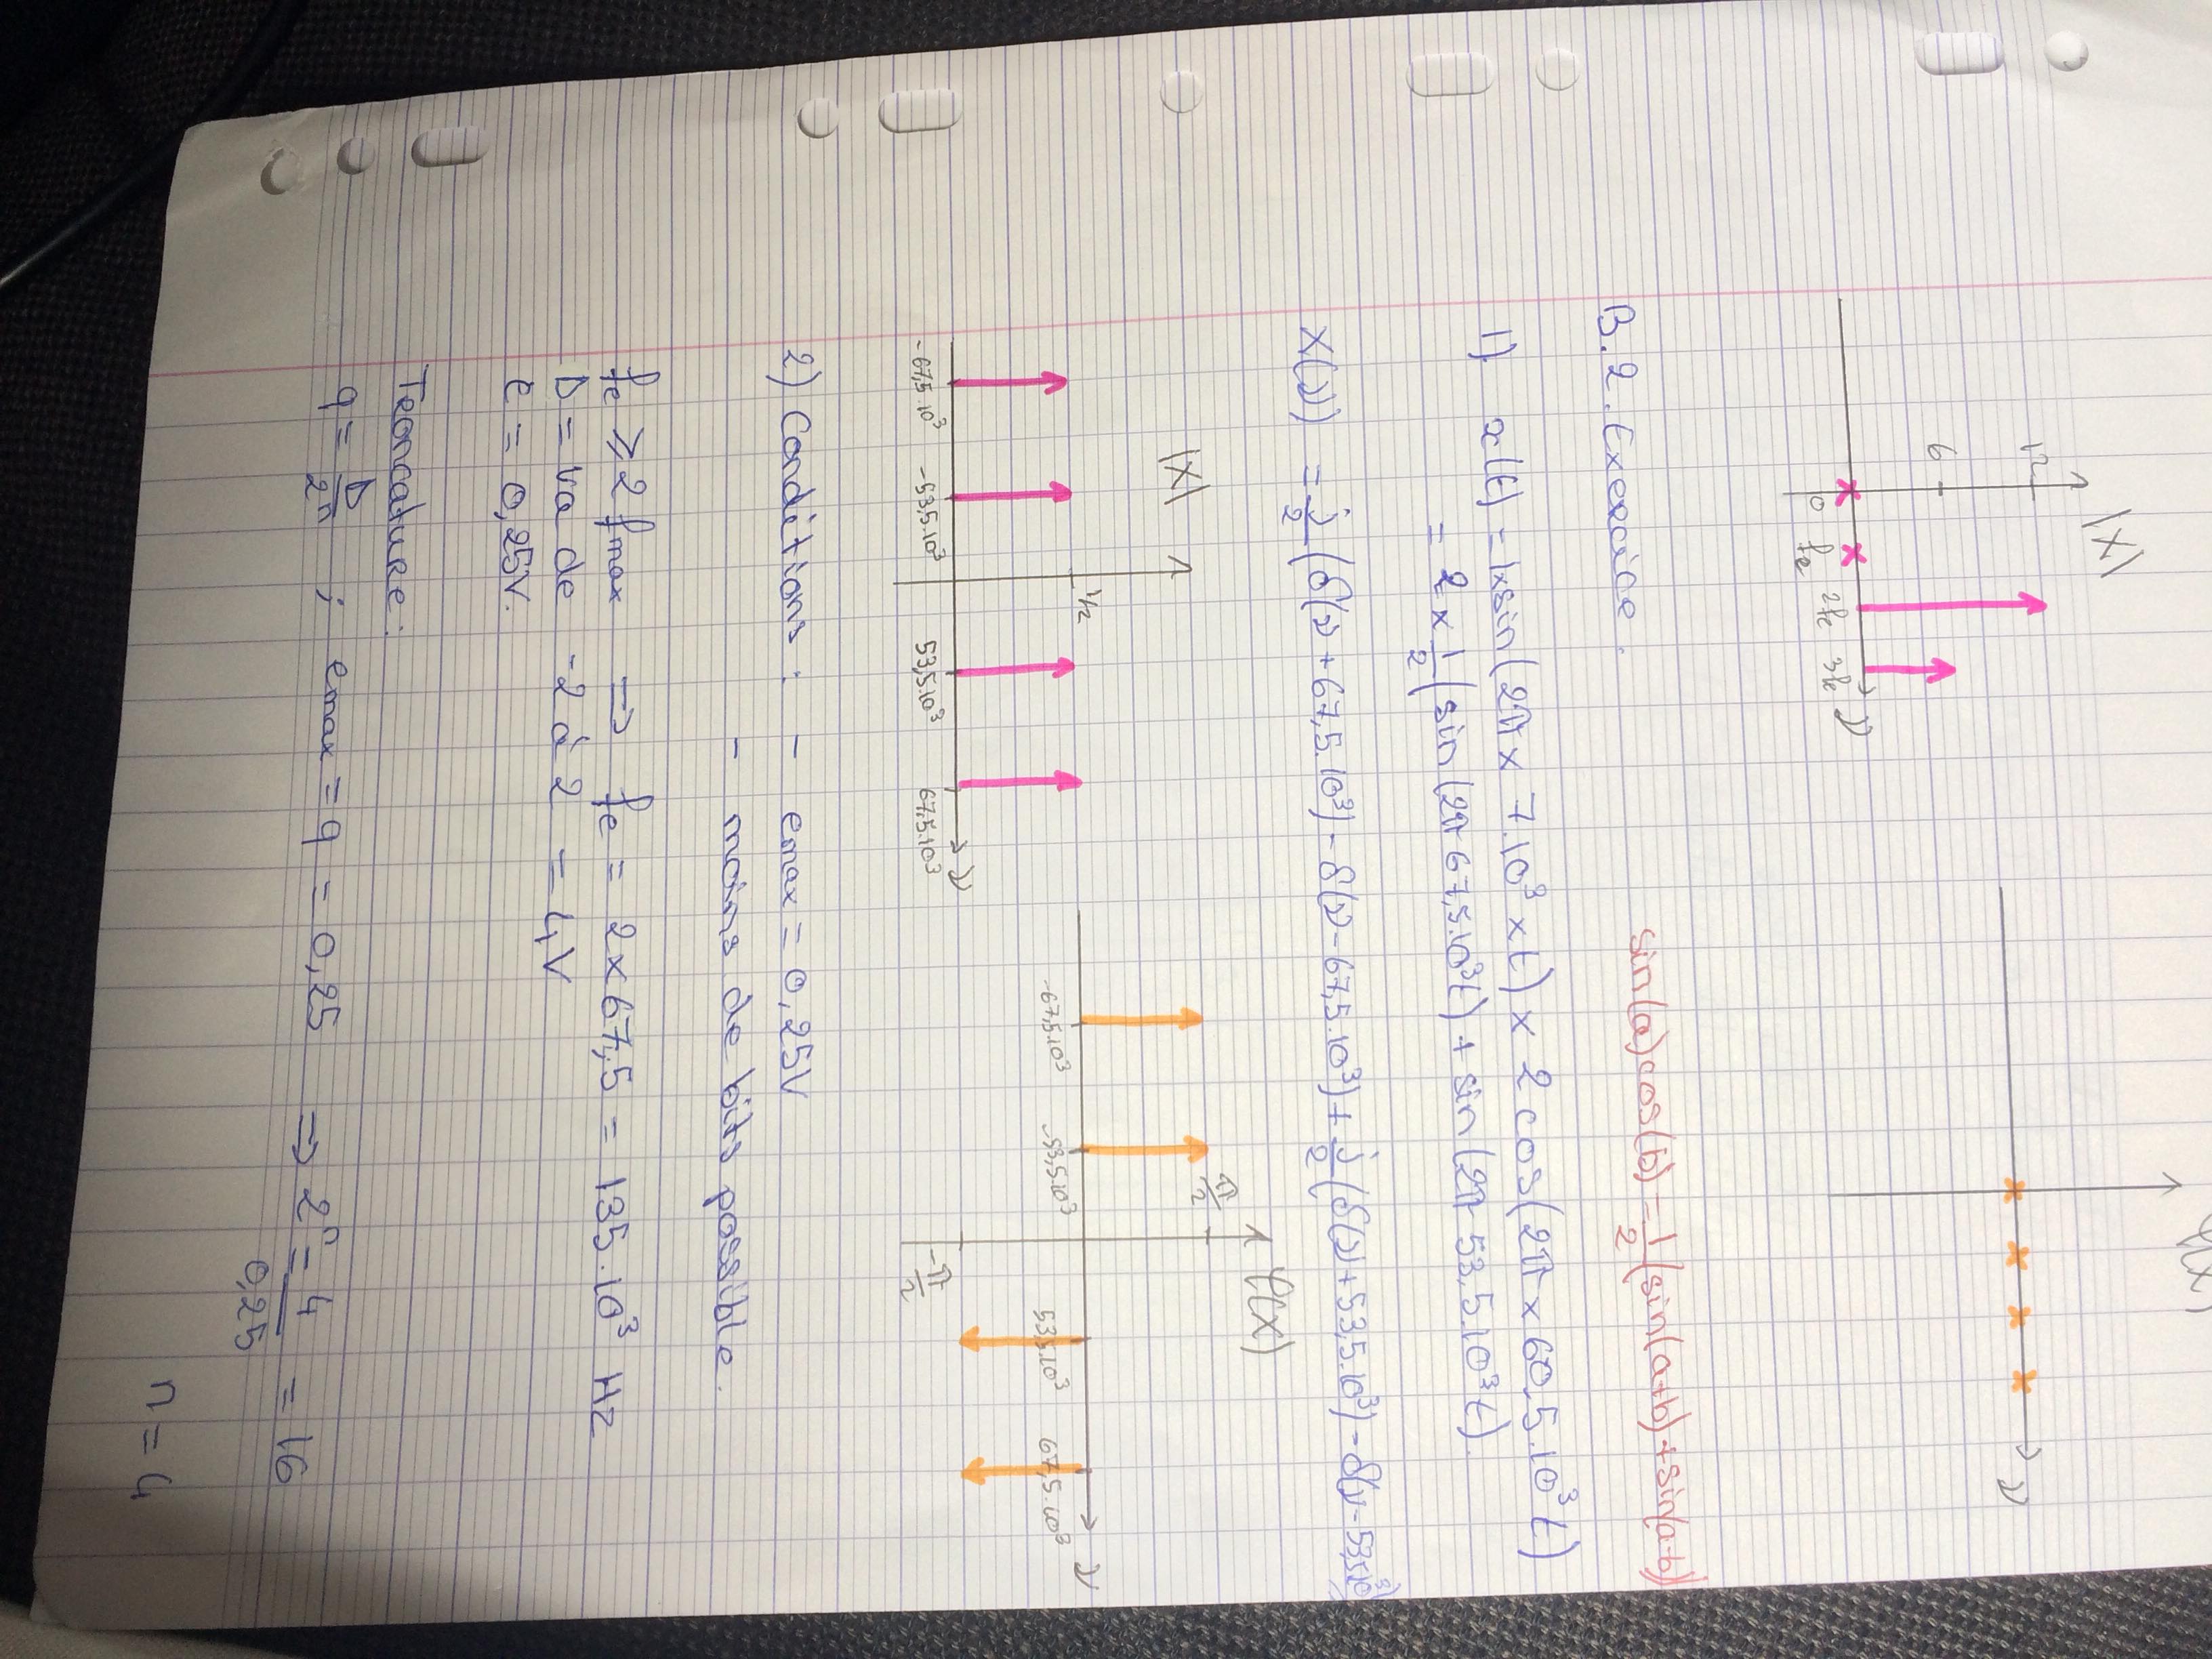 |X|
φ(x)
12
6
0 fe 2fe 3fe ν
ν
B.2. Exercice.
sin(a)cos(b) = 1/2 (sin(a+b)+sin(a-b))
1) x(t) = 1×sin(2π × 7.10³ × t) × 2 cos(2π × 60,5.10³ t)
= 2 × 1/2 (sin(2π 67,5.10³t) + sin(2π - 53,5.10³t).
X(ν) = j/2 (δ(ν + 67,5.10³) - δ(ν - 67,5.10³) + j/2 (δ(ν) + 53,5.10³) - δ(ν - 53,5.10³))
|X|
φ(X)
1/2
π/2
-67,5.10³ -53,5.10³ 53,5.10³ 67,5.10³ ν
-67,5.10³ -53,5.10³ 53,5.10³ 67,5.10³ ν
-π/2
2) Conditions : - emax = 0,25V
- moins de bits possible.
fe ⩾ 2 fmax ⇒ fe = 2 × 67,5 = 135.10³ Hz
D = va de -2 à 2 = 4V
e = 0,25V.
Troncature:
q = D/2ⁿ ; emax = q = 0,25 ⇒ 2ⁿ = 4/0,25 = 16
n = 4